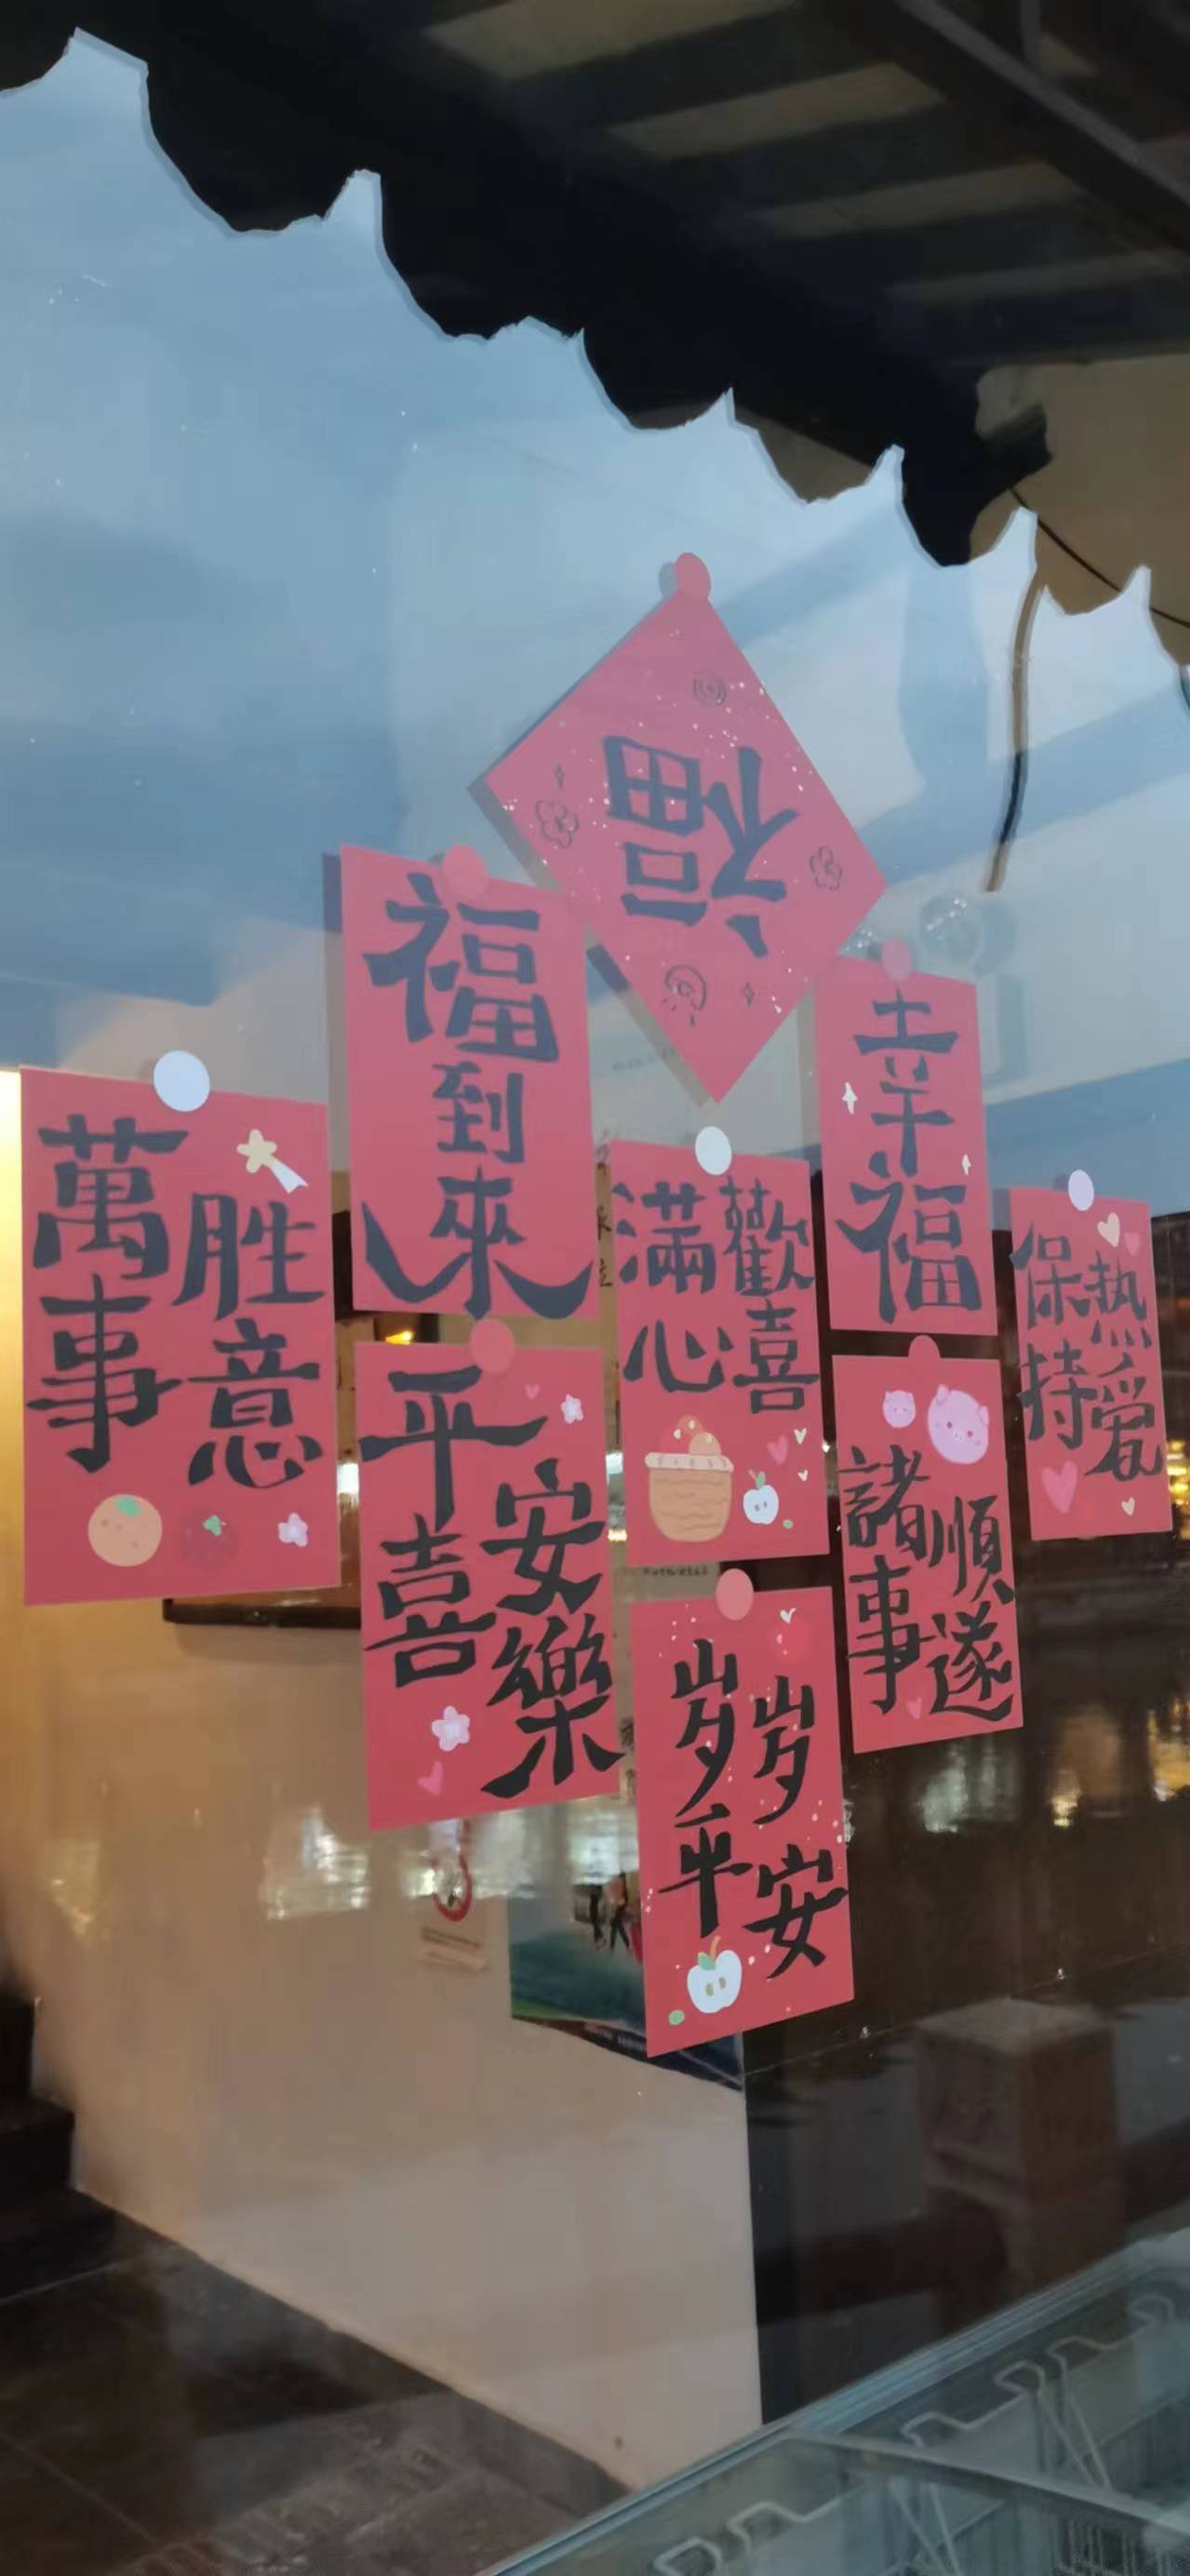 福
福到來
幸福
萬事
胜意
滿心
歡喜
保持
热爱
平喜
安樂
諸事
順遂
岁岁
平安